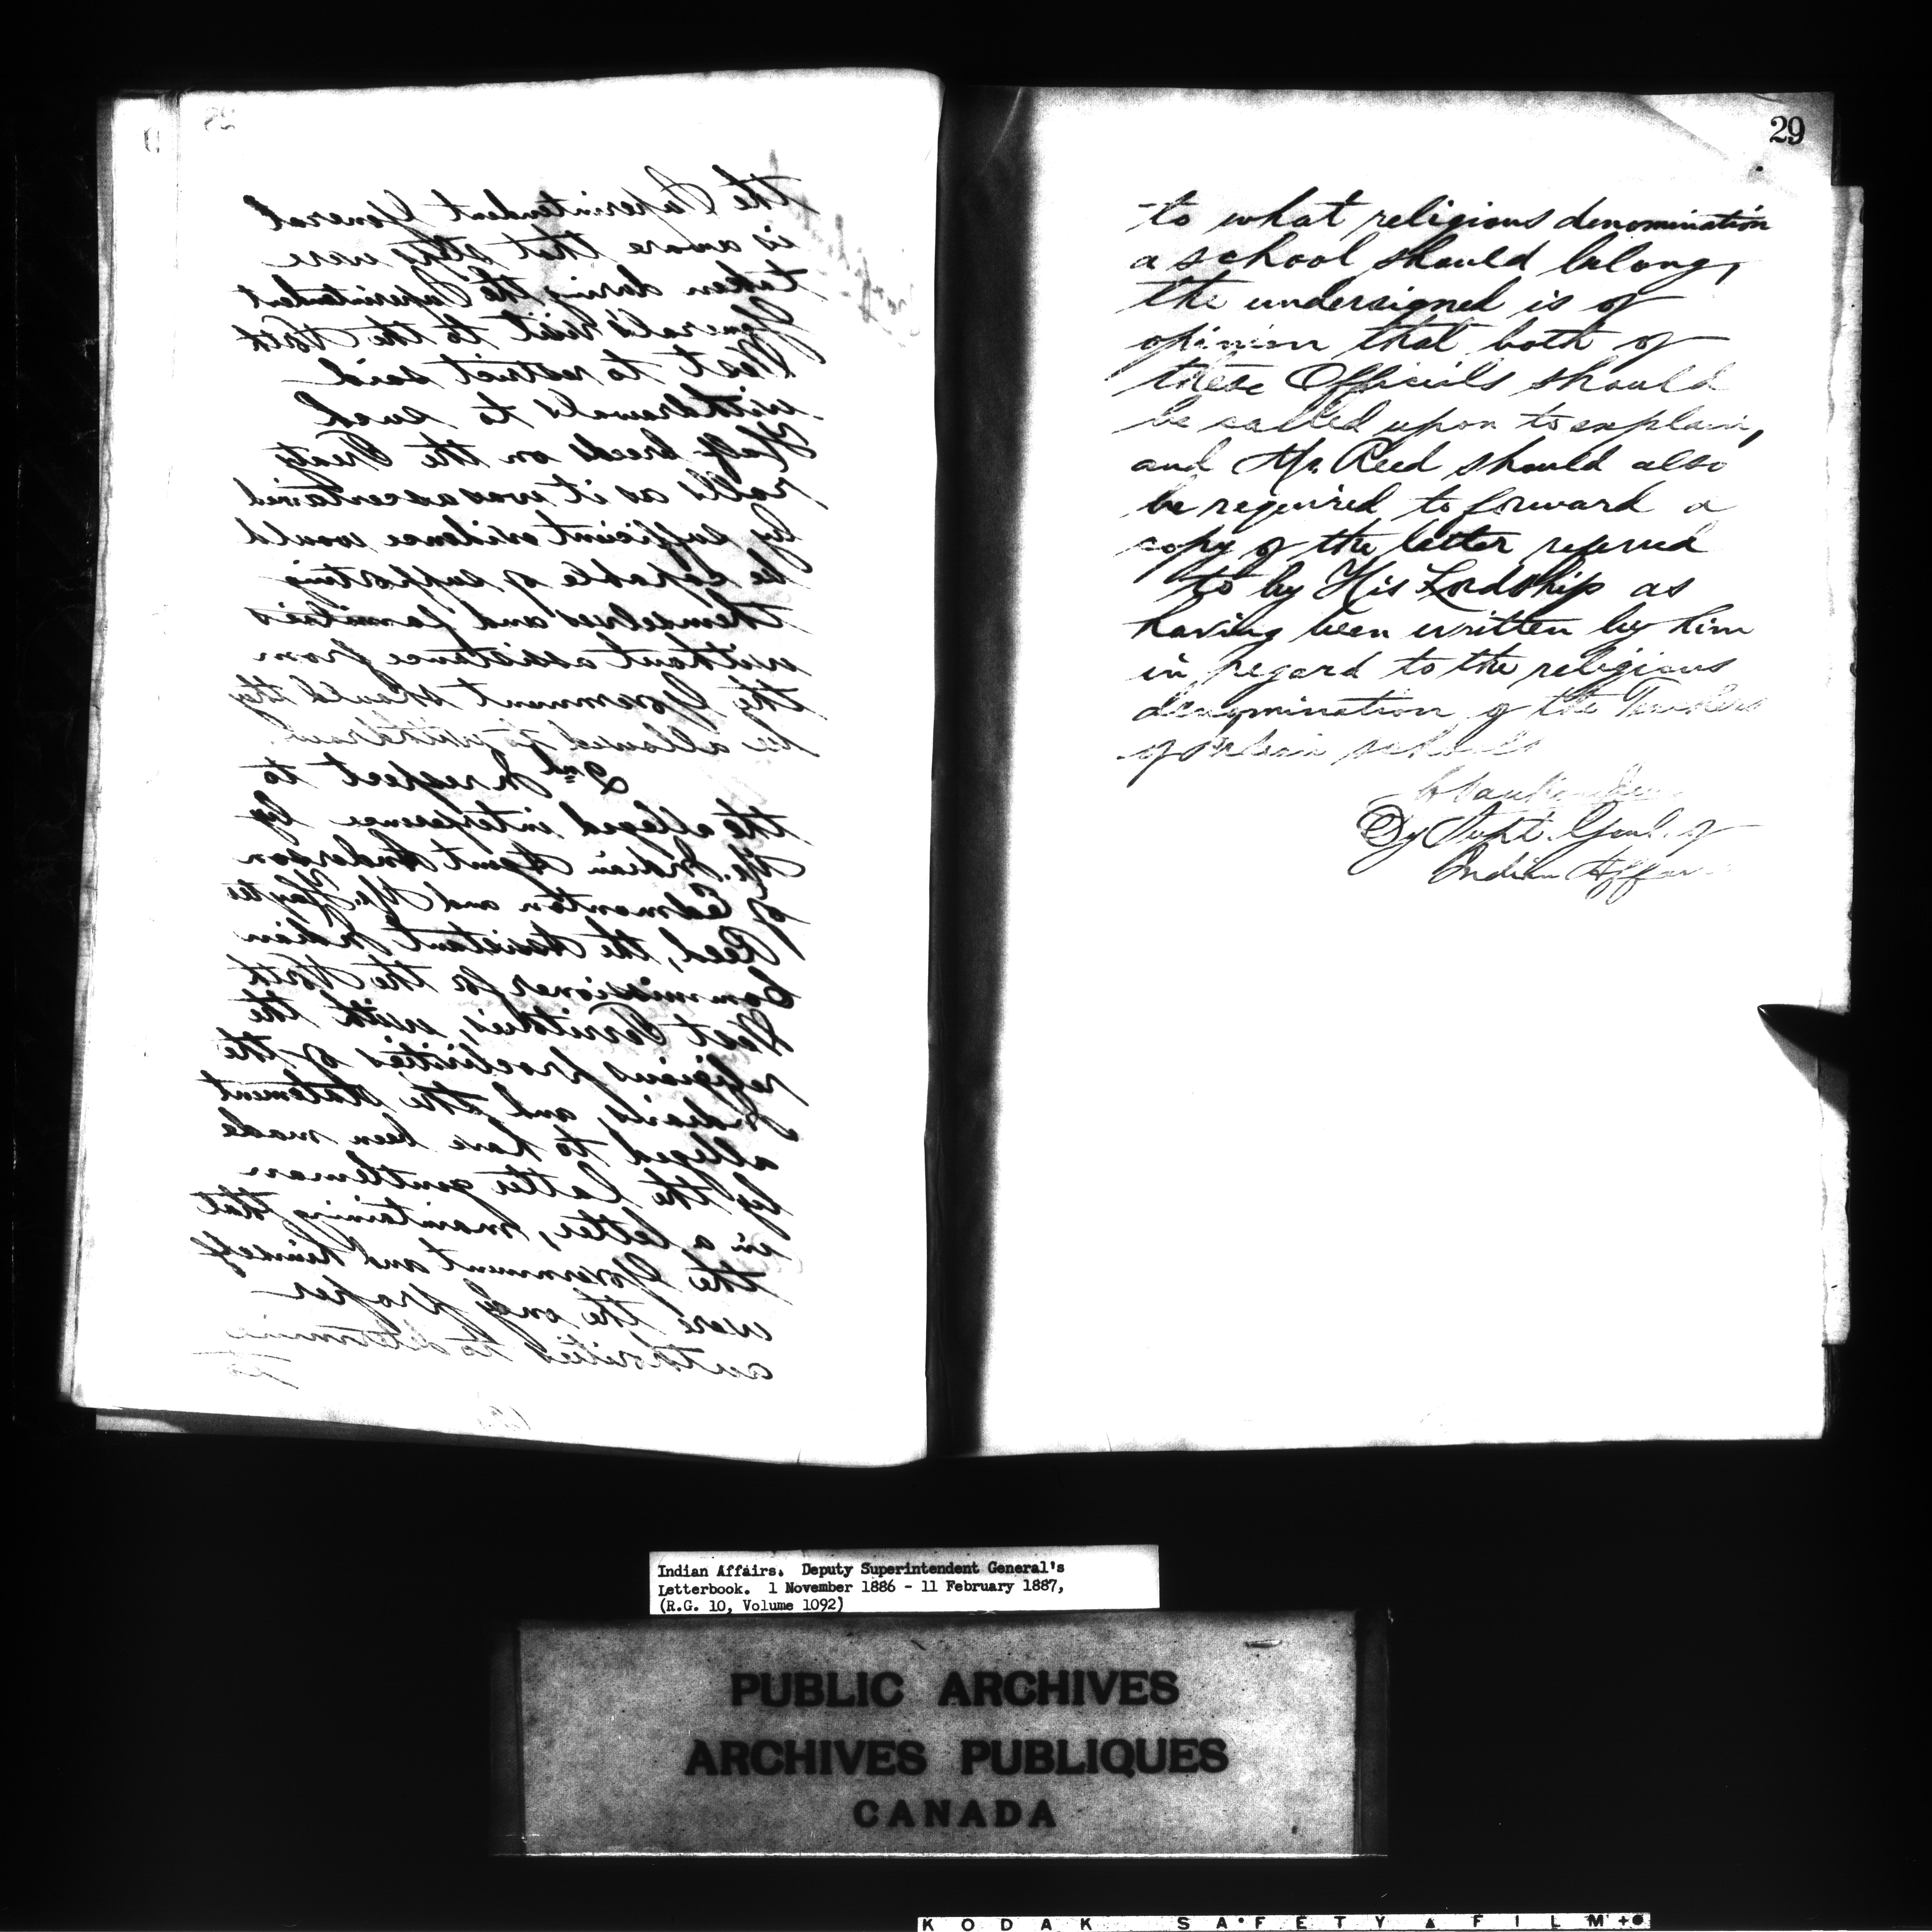 28
the Superintendent General
is aware that steps were
taken during the Superintendent
General's visit to the North
West to restrict said
withdrawals to such
Half breeds on the Treaty
rolls as it was ascertained
by sufficient evidence would
be capable of supporting
themselves and families
without assistance from
the Government should they
be allowed to withdraw.
2nd In respect to
the alleged interference by
Mr. Indian Agent Anderson
of Edmonton and Mr. Hayter
Reed, the Assistant Indian
Commissioner for the North
West Territories, with the
religious proclivities of the
Indians, and the statement
alleged to have been made
by the latter gentleman
in a letter, maintaining that
the Government and himself
were the only proper
authorities to determine
to
29
to what religious denomination
a school should belong,
the undersigned is of
opinion that both of
these Officials should
be called upon to explain,
and Mr. Reed should also
be required to forward a
copy of the letter referred
to by His Lordship as
having been written by him
in regard to the religious
denomination of the Teachers
of Indian schools
Dy Supt. Genl. of
Indian Affairs
Indian Affairs. Deputy Superintendent General's
Letterbook. 1 November 1886 - 11 February 1887,
(R.G. 10, Volume 1092)
PUBLIC ARCHIVES
ARCHIVES PUBLIQUES
CANADA
KODAK SAFETY FILM